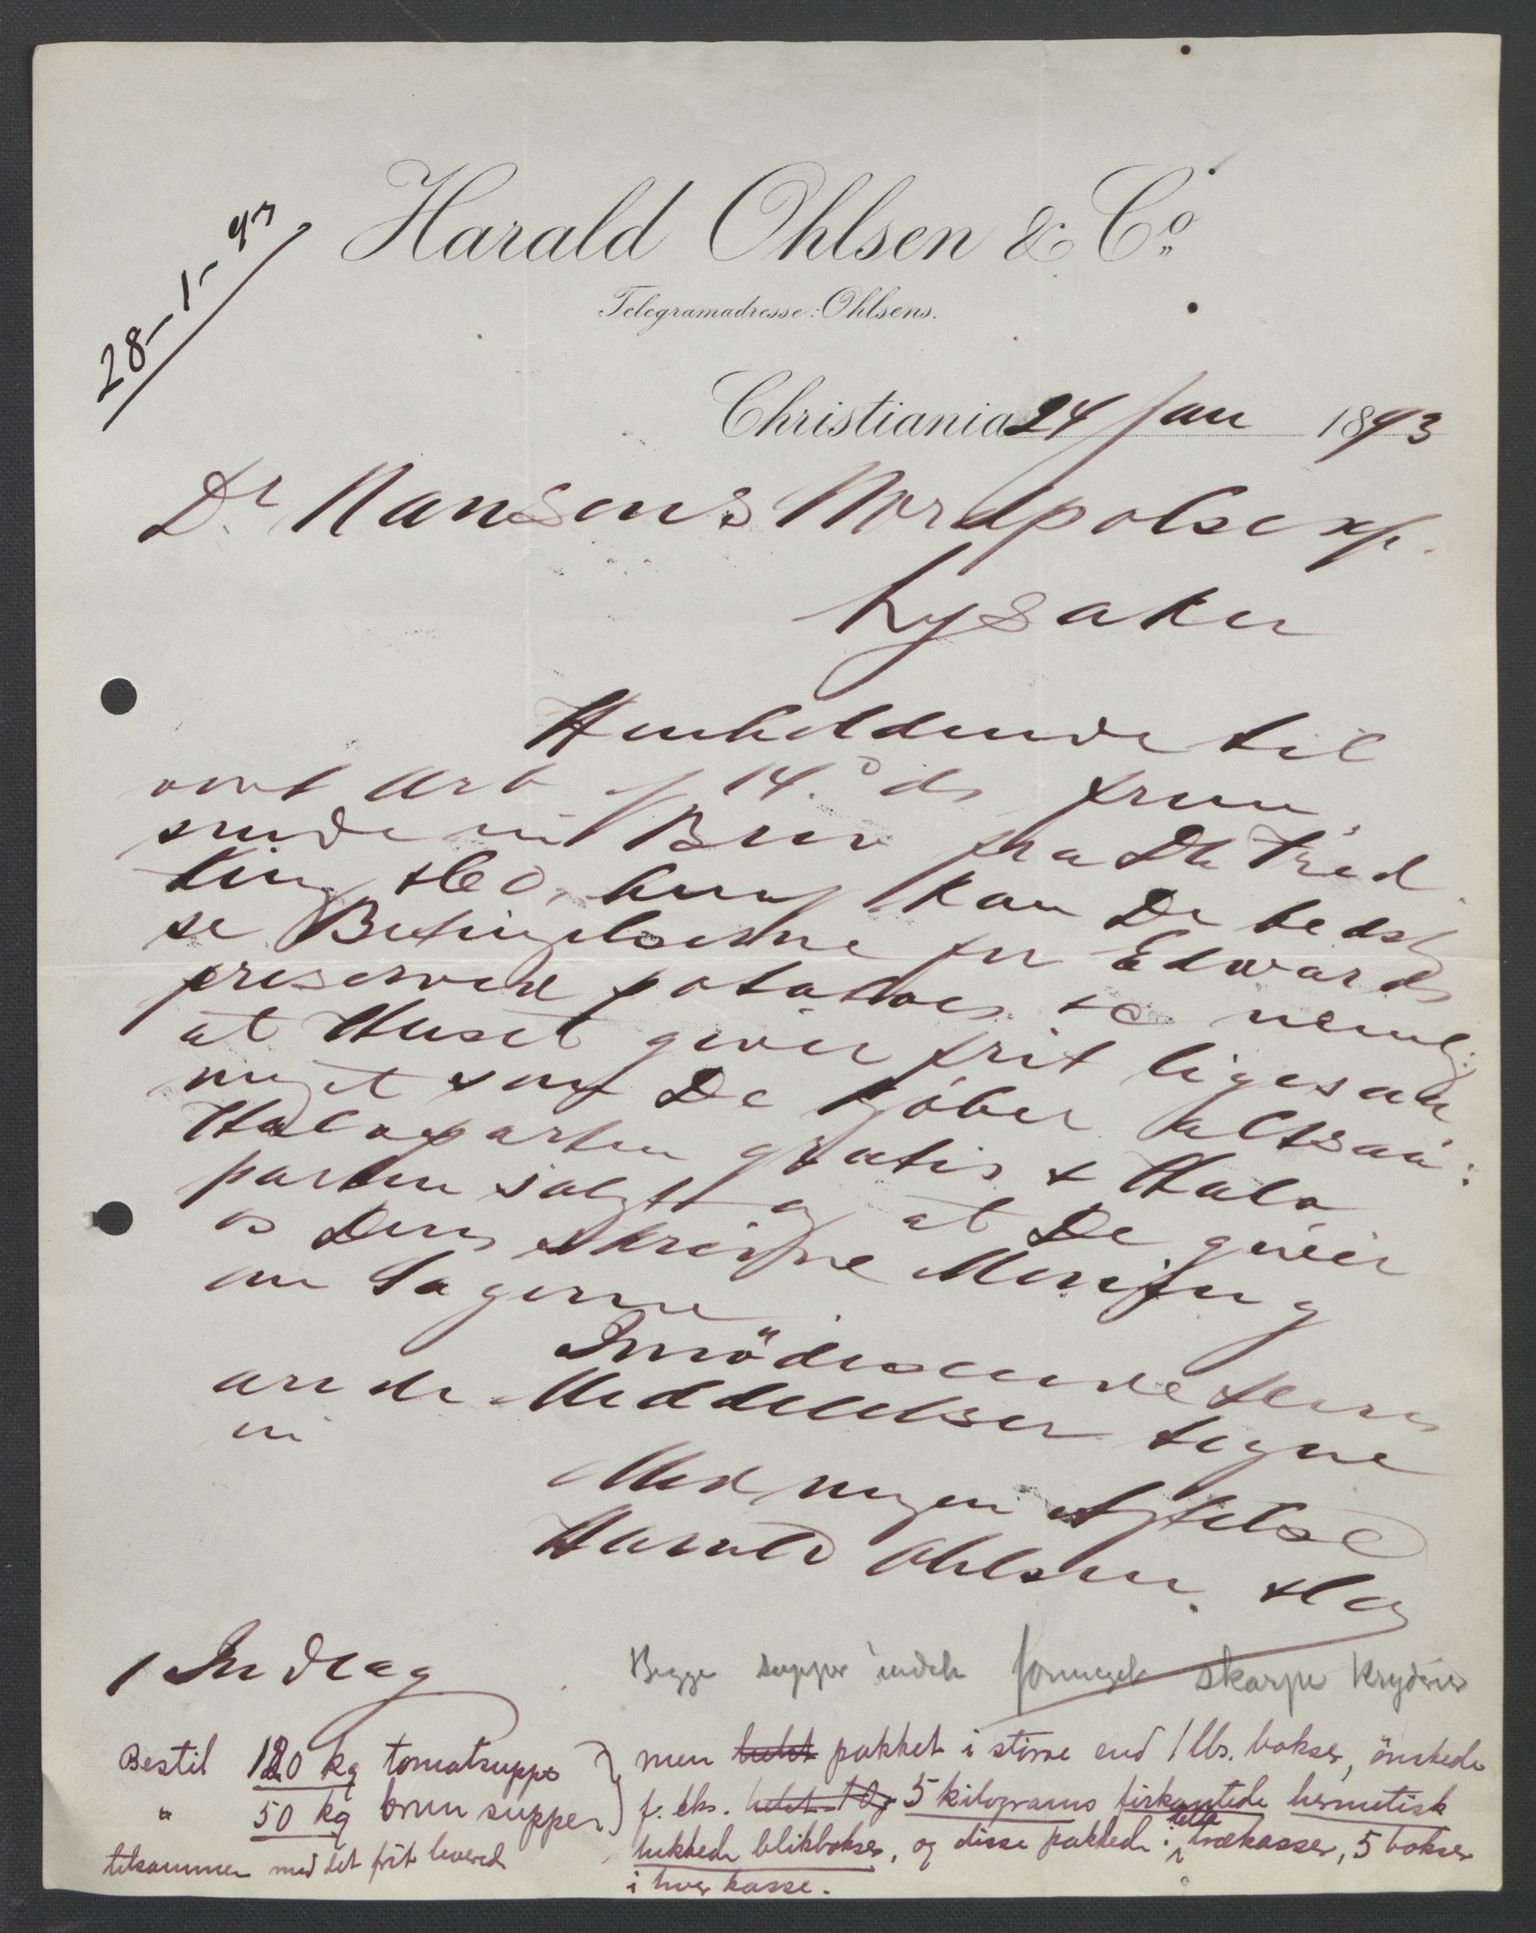 Harald Ohlsen & Co.
Telegramadresse: Ohlsens.
28-1-93
Christiania 24 Jan 1893
Dr. Nansens Nordpolsexp.
Lysaker
Henholdende til
vort Arb af 14. ds frem
sende vi Brev fra Dh Fred
King & Co, heraf kan De bedst
se Betingelserne for Edwards
preserved potatoes &c nemlig:
at Huset giver frit ligesaa
meget som De kjøber altsaa:
Halvparten gratis & Halv
parten solgt og at De giver
os Deres skriftlige Mening
om Sagerne.
Imødeseende Deres
ærede Meddelelser tegne
vi
Med megen Agtelse
Harald Ohlsen & Co
1 Indlæg
Begge supper inneh formeget skarpe Krydderier
Bestil 120 kg tomatsuppe
" 50 kg brun suppe
tilsammen med det frit levered
men helst pakket i større end 1 lbs. bokser, ønskede
f. eks. helst 10, 5 kilograms firkantede hermetisk
lukkede blikbokser, og disse pakkede i tette trækasser, 5 bokser
i hver kasse.